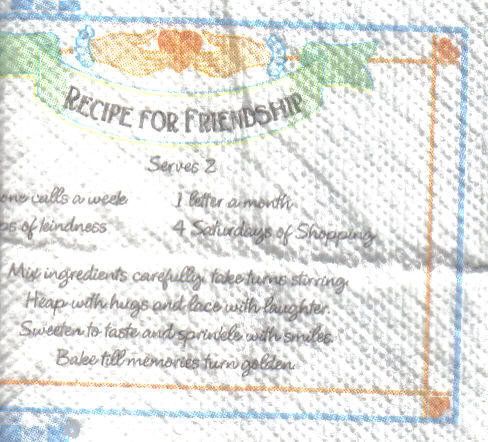 RECIPE FOR FRIENDSHIP
Serves 2
one calls a week 1 letter a month
s of kindness 4 Saturdays of Shopping
Mix ingredients carefully, take turns stirring.
Heap with hugs and lace with laughter.
Sweeten to taste and sprinkle with smiles.
Bake till memories turn golden.